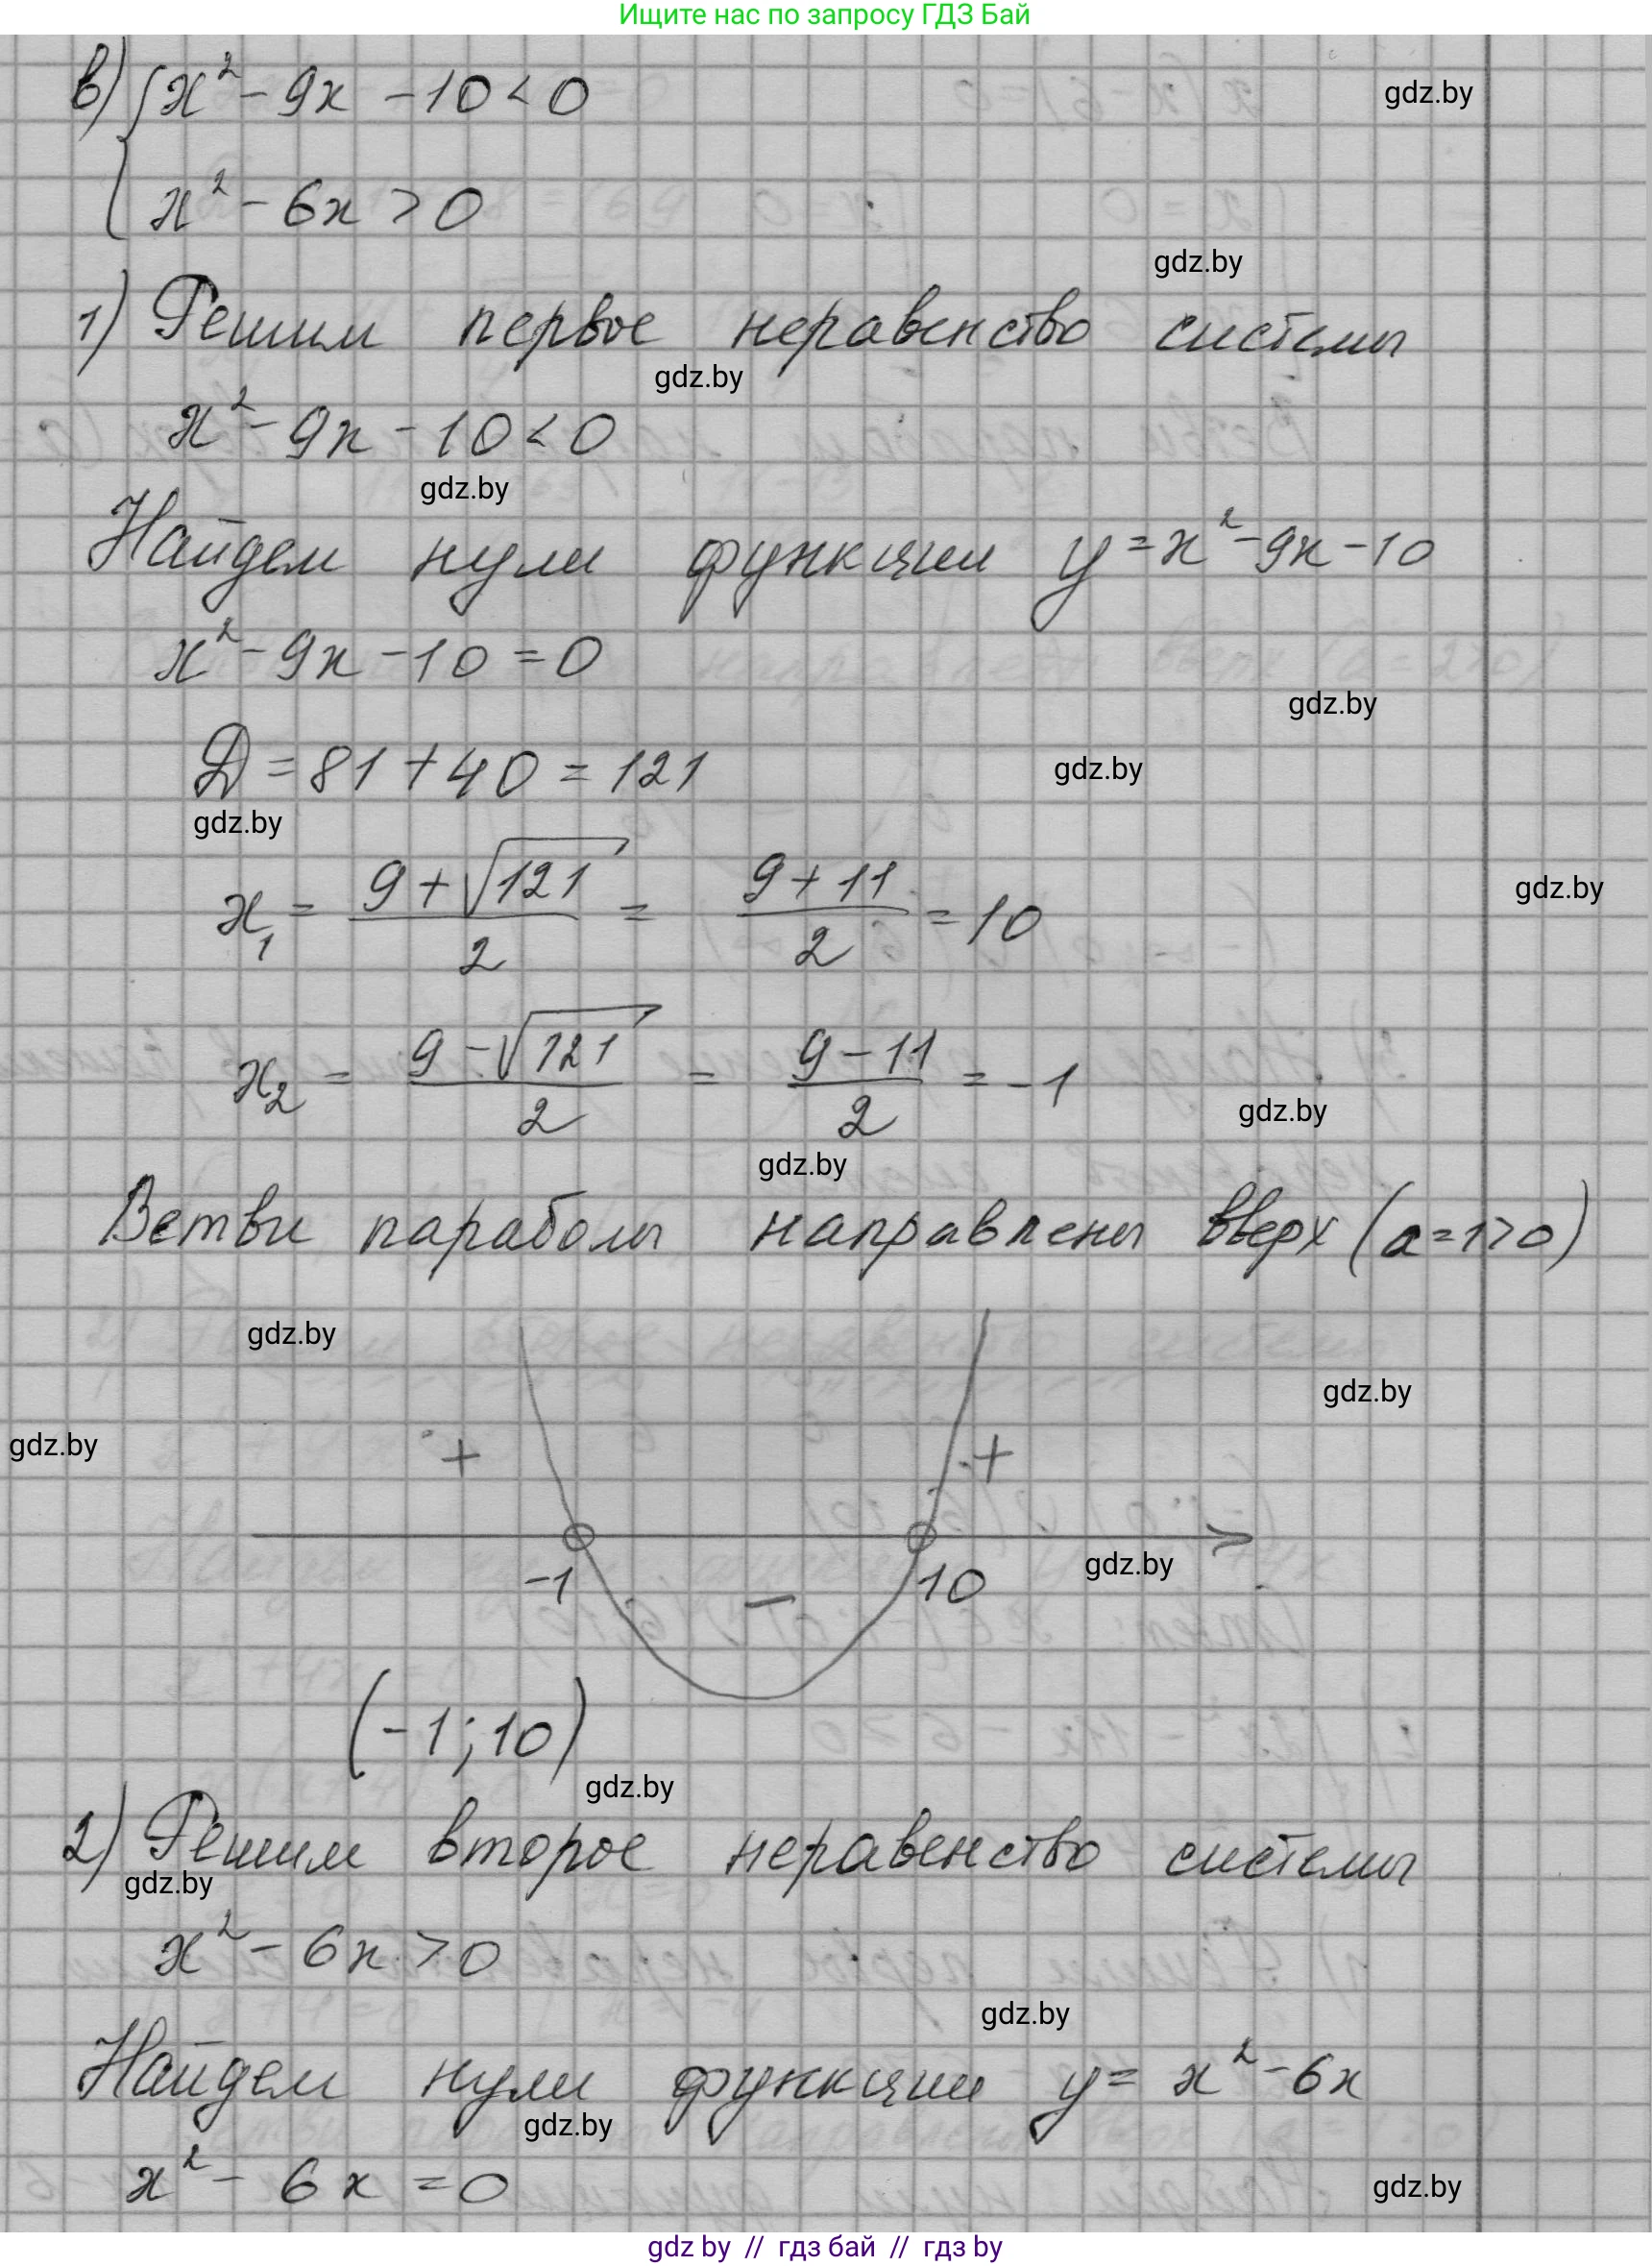 Ищите нас по запросу ГДЗ Бай
в) { x² - 9x - 10 < 0
x² - 6x > 0
gdz.by
gdz.by
1) Решим первое неравенство системы
gdz.by
x² - 9x - 10 < 0
gdz.by
Найдем нули функции y = x² - 9x - 10
x² - 9x - 10 = 0
gdz.by
D = 81 + 40 = 121
gdz.by
gdz.by
x₁ = (9 + √121)/2 = (9 + 11)/2 = 10
gdz.by
x₂ = (9 - √121)/2 = (9 - 11)/2 = -1
gdz.by
gdz.by
Ветви параболы направлены вверх (a = 1 > 0)
gdz.by
gdz.by
gdz.by
+ +
-1 - 10
gdz.by
(-1; 10)
gdz.by
2) Решим второе неравенство системы
gdz.by
x² - 6x > 0
gdz.by
Найдем нули функции y = x² - 6x
gdz.by
x² - 6x = 0
gdz.by
gdz by // гдз бай // гдз by